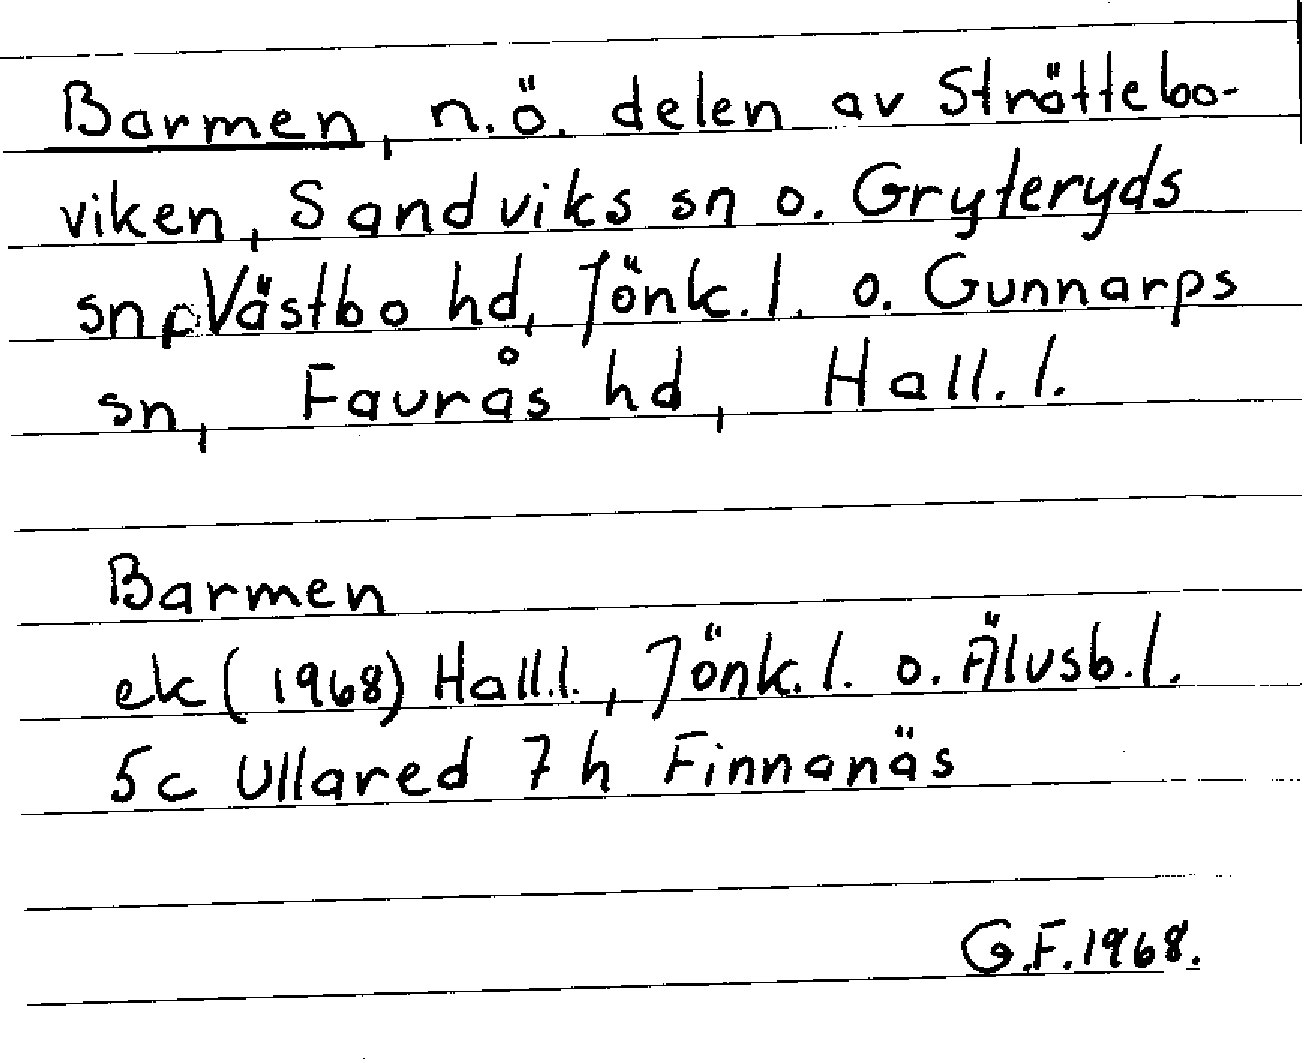 Barmen, n.ö. delen av Sträттebo-
viken, Sandviks sn o. Gryteryds
sn, Västbo hd, Jönk. l. o. Gunnarps
sn, Faurås hd, Hall. l.
Barmen
ek (1968) Hall.l., Jönk. l. o. Älvsb. l.
5c Ullared 7h Finnanäs
G.F. 1968.